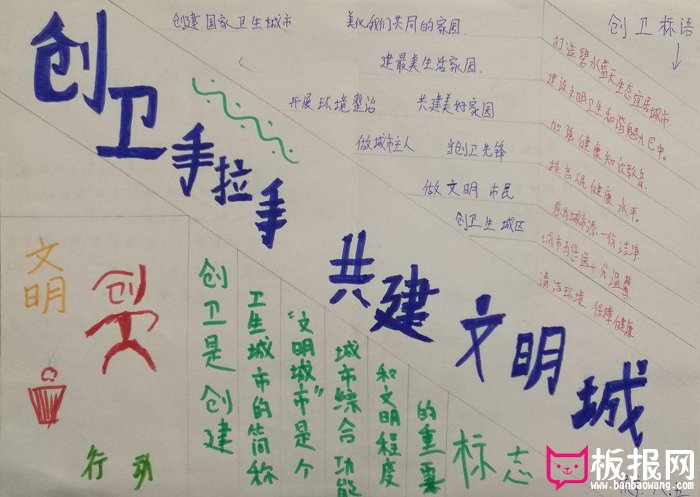 创卫手拉手 共建文明城
创建国家卫生城市 美化我们共同的家园.
建最美生活家园.
开展环境整治 共建美好家园
做城市主人 当创卫先锋
做文明市民
创卫生城区
创卫标语
打造碧水蓝天生态宜居城市.
建设文明卫生和谐魅力巴中.
加强健康知识教育.
提高健康水平.
城市
清洁环境 保障健康
文明
创
行动
创卫是创建
卫生城市的简称
"文明城市"是个
城市综合功能
和文明程度
的重要
标志
板报网
www.banbaowang.com